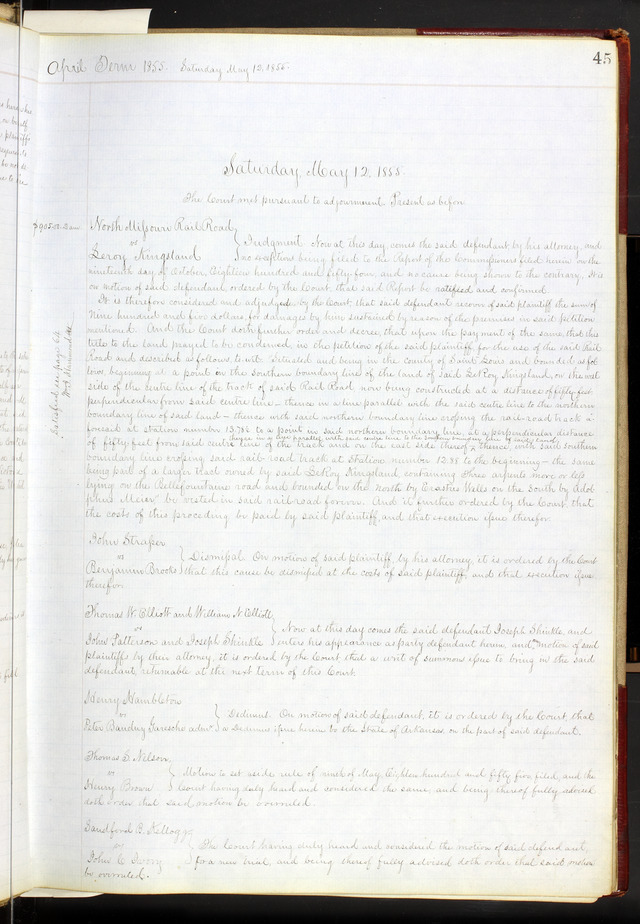 April Term 1855. Saturday May 12, 1855.
45
Saturday, May 12, 1855.
The Court met pursuant to adjournment. Present as before.
North Missouri Rail Road
vs
Leroy Kingsland
Judgment. Now at this day, comes the said defendant by his attorney, and
no exceptions being filed to the Report of the Commissioners filed herein on the
nineteenth day of October, Eighteen hundred and fifty four, and no cause being shown to the contrary, It is
on motion of said defendant, ordered by the Court, that said Report be ratified and confirmed.
It is therefore considered and adjudged, by the Court, that said defendant recover of said plaintiff the sum of
Nine hundred and five dollars, for damages by him sustained by reason of the premises in said petition
mentioned. And the Court doth further order and decree, that upon the payment of the same, that the
title to the land prayed to be condemned, in the petition of the said plaintiff for the use of the said Rail
Road and described as follows, to wit: Situated and being in the County of Saint Louis and bounded as fol
lows, beginning at a point on the southern boundary line of the land of said LeRoy Kingsland, on the west
side of the centre line of the track of said Rail Road now being constructed at a distance of fifty feet
perpendicular from said centre line - thence in a line parallel with the said centre line to the northern
boundary line of said land - thence with said northern boundary line crossing the rail-road track a-
foresaid at station number 13.782 to a point in said northern boundary line, at a perpendicular distance
of fifty feet from said centre line of the track and on the east side thereof, thence in a line parallel with said centre line to the southern boundary line of said land, thence, with said southern
boundary line crossing said rail-road track at Station number 12.88 to the beginning - the same
being part of a larger tract owned by said LeRoy Kingsland containing three arpents more or less
lying on the Bellefountaine road and bounded on the north by Erastus Wells on the South by Adol
phus Meier be vested in said railroad forever. And it further ordered by the Court, that
the costs of this proceeding be paid by said plaintiff, and that execution issue therefor.
Satisfied see page 62
John Straser
vs
Benjamin Brooks
Dismissal. On motion of said plaintiff, by his attorney, it is ordered by the Court
that this cause be dismissed at the costs of said plaintiff, and that execution issue
therefor.
Thomas W. Elliott and William N. Elliott
vs
John Patterson and Joseph Shinkle
Now at this day comes the said defendant Joseph Shinkle, and
enters his appearance as party defendant herein, and on motion of said
plaintiffs by their attorney, it is ordered by the Court that a writ of summons issue to bring in the said
defendant, returnable at the next term of this Court.
Henry Hambleton
vs
Peter Bauduy Garesche admr.
Dedimus. On motion of said defendant, it is ordered by the Court, that
a Dedimus issue herein to the State of Arkansas, on the part of said defendant.
Thomas S. Nelson
vs
Henry Brown
Motion to set aside rule of ninth of May, Eighteen hundred and fifty five, filed, and the
Court having duly heard and considered the same, and being thereof fully advised
doth order that said motion be overruled.
Sandford G. Kellogg
vs
John C. Ivory
The Court having duly heard and considered the motion of said defendant,
for a new trial, and being thereof fully advised doth order that said motion
be overruled.